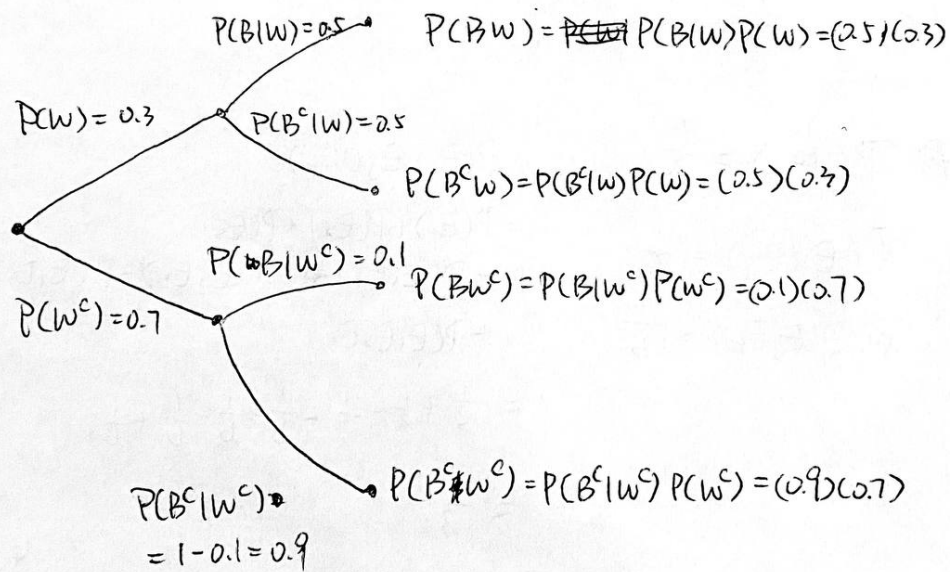 P(B|W)=0.5
P(BW) = P(B|W)P(W) = (0.5)(0.3)
P(W) = 0.3
P(Bᶜ|W)=0.5
P(BᶜW) = P(Bᶜ|W)P(W) = (0.5)(0.3)
P(B|Wᶜ) = 0.1
P(BWᶜ) = P(B|Wᶜ)P(Wᶜ) = (0.1)(0.7)
P(Wᶜ) = 0.7
P(BᶜWᶜ) = P(Bᶜ|Wᶜ) P(Wᶜ) = (0.9)(0.7)
P(Bᶜ|Wᶜ)
= 1 - 0.1 = 0.9